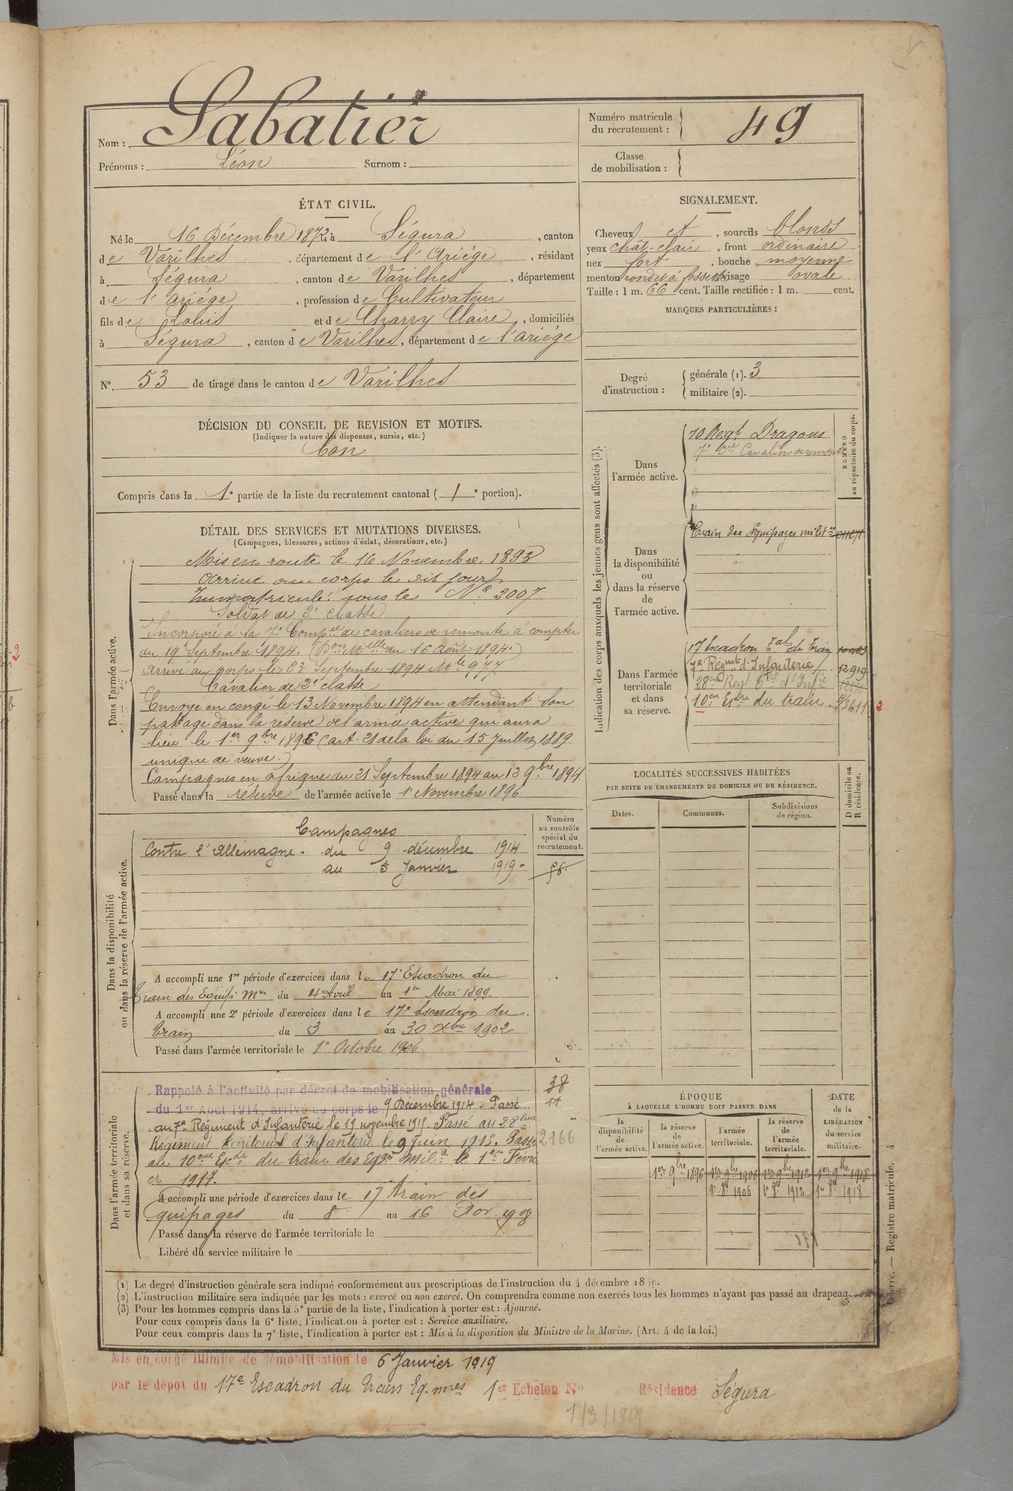 Nom : Sabatier
Prénoms : Léon Surnom :
Numéro matricule
du recrutement : 49
Classe
de mobilisation :
ÉTAT CIVIL.
Né le 16 Décembre 1872, à Ségura, canton
de Varilhes, département de l'Ariège, résidant
à Ségura, canton de Varilhes, département
de l'Ariège, profession de Cultivateur
fils de Louis et de Charry Claire, domiciliés
à Ségura, canton de Varilhes, département de l'Ariège
N° 53 de tirage dans le canton de Varilhes
SIGNALEMENT.
Cheveux et, sourcils blonds
yeux chât-clair, front ordinaire
nez fort, bouche moyenne
menton rond et à fossette visage ovale
Taille : 1 m. 66 cent. Taille rectifiée : 1 m. cent.
MARQUES PARTICULIÈRES :
Degré
d'instruction :
générale (1). 3
militaire (2).
DÉCISION DU CONSEIL DE REVISION ET MOTIFS.
(Indiquer la nature des dispenses, sursis, etc.)
bon
Compris dans la 1e partie de la liste du recrutement cantonal ( 1e portion).
DÉTAIL DES SERVICES ET MUTATIONS DIVERSES.
(Campagnes, blessures, actions d'éclat, décorations, etc.)
Dans l'armée active.
Mis en route le 16 Novembre 1893
Arrivé au corps le dit jour
Immatriculé sous le N° 3007
Soldat de 2e classe
Incorporé à la 7e Compie de cavaliers de remonte à compter
du 19 Septembre 1894. (Don Mlle du 16 Août 1894.)
Arrivé au corps le 23 Septembre 1894 Mle 977
Cavalier de 2e classe
Envoyé en congé le 13 Novembre 1894 en attendant son
passage dans la réserve de l'armée active qui aura
lieu le 1er 9bre 1896 (art. 21 de la loi du 15 Juillet 1889
unique de veuve.)
Campagnes en afrique du 21 Septembre 1894 au 12 9bre 1894
Passé dans la réserve de l'armée active le 1 Novembre 1896
Indication des corps auxquels les jeunes gens sont affectés (3).
NUMÉRO
au répertoire du corps.
Dans
l'armée active.
10 Regt Dragons
7e Cie Cavaliers de remonte
Dans
la disponibilité
ou
dans la réserve
de
l'armée active.
Train des Equipages milit
Dans l'armée
territoriale
et dans
sa réserve.
17 Escadron Tal du Train
7e Régiment d'Infanterie 12919
28eme Regt Tal d'Infie
10eme Esdre du train
LOCALITÉS SUCCESSIVES HABITÉES
PAR SUITE DE CHANGEMENTS DE DOMICILE OU DE RÉSIDENCE.
D domicile ou
R résidence.
Dates. Communes. Subdivisions
de région.
Dans la disponibilité
ou dans la réserve de l'armée active.
Numéro
au contrôle
spécial du
recrutement.
Campagnes
Contre l'Allemagne. du 9 décembre 1914
au 5 Janvier 1919
A accompli une 1re période d'exercices dans le 17e Escadron du
Train des Equip. Mres du 4 Avril au 1er Mai 1899
A accompli une 2e période d'exercices dans le 17e Escadron du
train du 3 au 30 Xbre 1902
Passé dans l'armée territoriale le 1e Octobre 1906
Dans l'armée territoriale
et dans sa réserve.
38
11
2166
Rappelé à l'activité par décret de mobilisation générale
du 1er Août 1914, arrivé au corps le 9 Décembre 1914. Passé
au 7e Régiment d'Infanterie le 15 novembre 1915. Passé au 28eme
Régiment territorial d'Infanterie le 9 Juin 1915. Passé
au 10eme Esdr du train des Eqpges milres le 1er Févri
er 1917.
A accompli une période d'exercices dans le 17 train des
quipages du 8 au 16
Passé dans la réserve de l'armée territoriale le
Libéré du service militaire le
ÉPOQUE
À LAQUELLE L'HOMME DOIT PASSER DANS
DATE
de la
LIBÉRATION
du service
militaire.
la
disponibilité
de
l'armée active.
la réserve
de
l'armée active.
l'armée
territoriale.
la réserve
de
l'armée
territoriale.
1er 9bre 1896 1er 9bre 1906 1er 9bre 1912 1er 9bre 1918
1e 8b 1906 1e 8b 1912 1er 8b 1918
(1) Le degré d'instruction générale sera indiqué conformément aux prescriptions de l'instruction du 4 décembre 1889.
(2) L'instruction militaire sera indiquée par les mots : exercé ou non exercé. On comprendra comme non exercés tous les hommes n'ayant pas passé au drapeau.
(3) Pour les hommes compris dans la 5e partie de la liste, l'indication à porter est : Ajourné.
Pour ceux compris dans la 6e liste, l'indication à porter est : Service auxiliaire.
Pour ceux compris dans la 7e liste, l'indication à porter est : Mis à la disposition du Ministre de la Marine. (Art. 4 de la loi.)
Guerre. — Registre matricule. 4
Mis en congé illimité de démobilisation le 6 Janvier 1919
par le dépôt du 17e Escadron du train Eq. mres 1er Echelon N° Résidence Ségura
1/3/1919